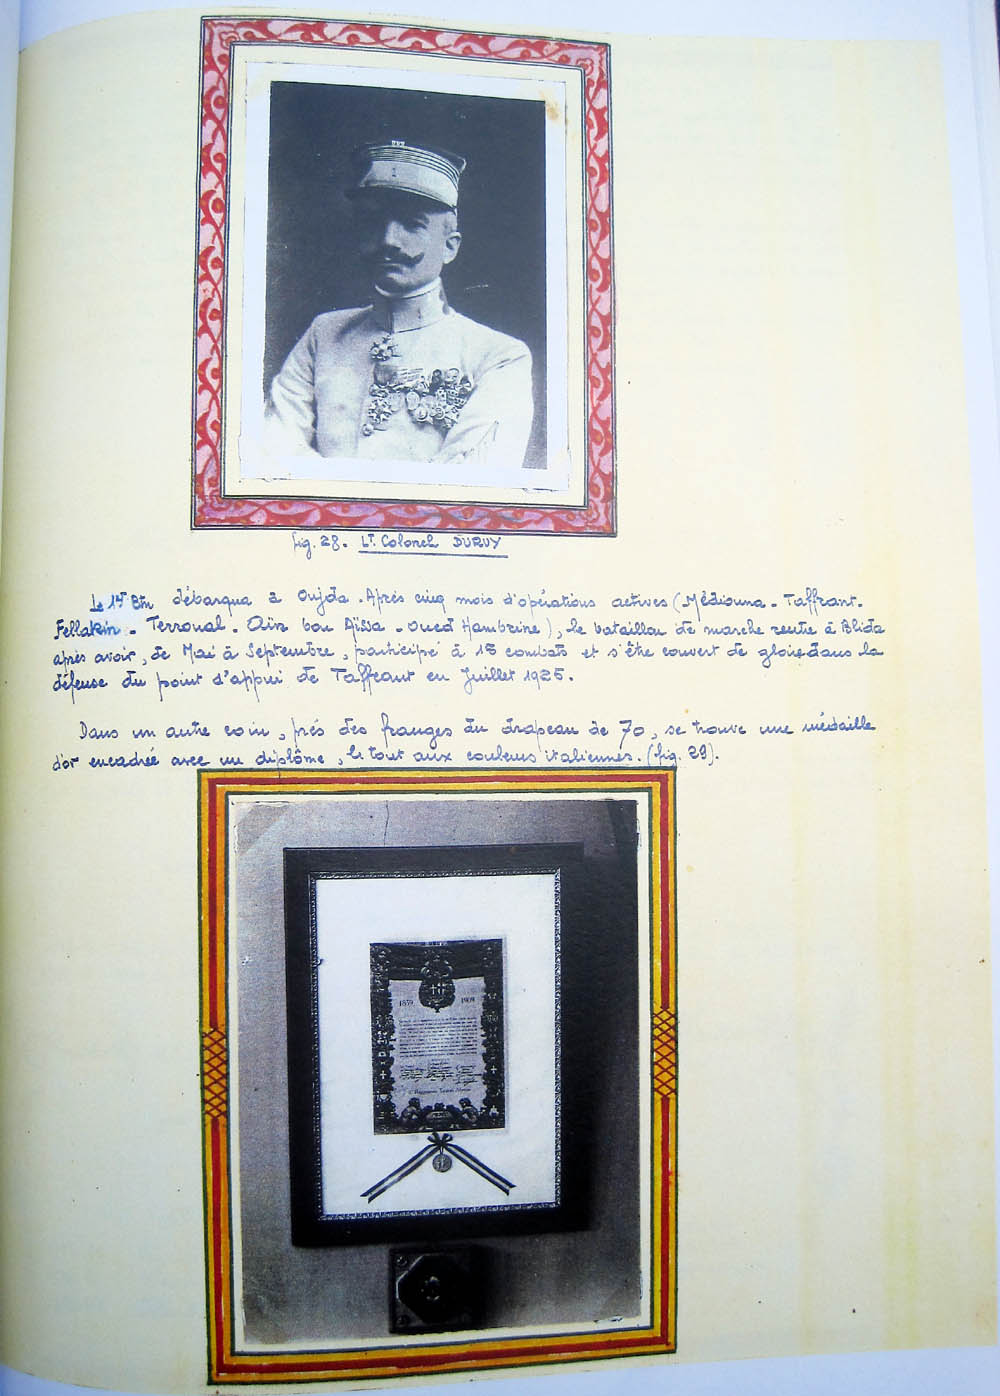 fig. 28. Lt. Colonel DURUY
Le 14e Btn débarqua à Oujda. Après cinq mois d'opérations actives (Médiouna - Taffrant.
Fellakin - Terroual - Aïn bou Aïssa - Oued Hambrine), le bataillon de marche rentre à Blida
après avoir, de Mai à Septembre, participé à 18 combats et s'être couvert de gloire dans la
défense du point d'appui de Taffrant en Juillet 1925.
Dans un autre coin, prés des franges du drapeau de 70, se trouve une médaille
d'or encadrée avec un diplôme, le tout aux couleurs italiennes. (fig. 29).
1859 1909